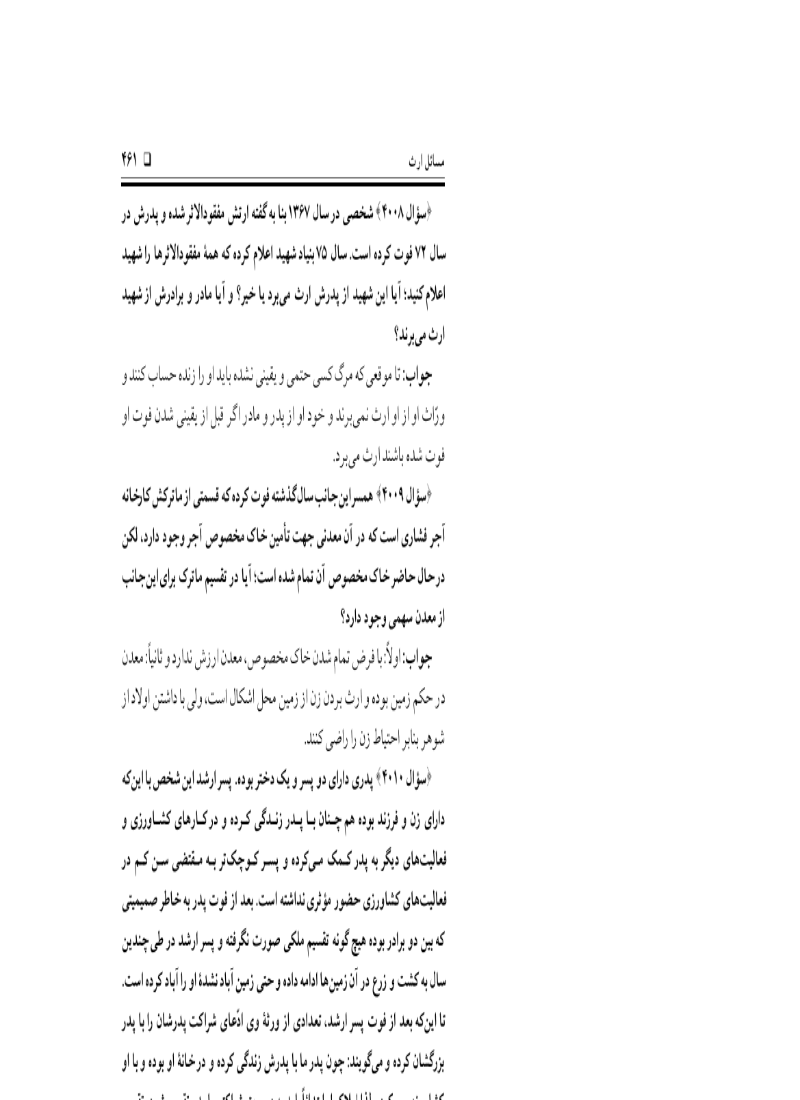 مسائل ارث ❑ ۴۶۱
﴿سؤال ۴۰۰۸﴾ شخصی در سال ۱۳۶۷ بنا به گفته ارتش مفقودالاثر شده و پدرش در
سال ۷۲ فوت کرده است. سال ۷۵ بنیاد شهید اعلام کرده که همهٔ مفقودالاثرها را شهید
اعلام کنید؛ آیا این شهید از پدرش ارث می‌برد یا خیر؟ و آیا مادر و برادرش از شهید
ارث می‌برند؟
جواب: تا موقعی که مرگ کسی حتمی و یقینی نشده باید او را زنده حساب کنند و
ورّاث او از او ارث نمی‌برند و خود او از پدر و مادر اگر قبل از یقینی شدن فوت او
فوت شده باشند ارث می‌برد.
﴿سؤال ۴۰۰۹﴾ همسر این جانب سال گذشته فوت کرده که قسمتی از ماترکش کارخانه
آجر فشاری است که در آن معدنی جهت تأمین خاک مخصوص آجر وجود دارد، لکن
در حال حاضر خاک مخصوص آن تمام شده است؛ آیا در تقسیم ماترک برای این جانب
از معدن سهمی وجود دارد؟
جواب: اولاً: با فرض تمام شدن خاک مخصوص، معدن ارزش ندارد و ثانیاً: معدن
در حکم زمین بوده و ارث بردن زن از زمین محل اشکال است، ولی با داشتن اولاد از
شوهر بنابر احتیاط زن را راضی کنند.
﴿سؤال ۴۰۱۰﴾ پدری دارای دو پسر و یک دختر بوده. پسر ارشد این شخص با این‌که
دارای زن و فرزند بوده هم چنان با پدر زندگی کرده و در کارهای کشاورزی و
فعالیت‌های دیگر به پدر کمک می‌کرده و پسر کوچک‌تر به مقتضی سن کم در
فعالیت‌های کشاورزی حضور مؤثری نداشته است. بعد از فوت پدر به خاطر صمیمیتی
که بین دو برادر بوده هیچ گونه تقسیم ملکی صورت نگرفته و پسر ارشد در طی چندین
سال به کشت و زرع در آن زمین‌ها ادامه داده و حتی زمین آباد نشدهٔ او را آباد کرده است.
تا این‌که بعد از فوت پسر ارشد، تعدادی از ورثهٔ وی ادّعای شراکت پدرشان را با پدر
بزرگشان کرده و می‌گویند: چون پدر ما با پدرش زندگی کرده و در خانهٔ او بوده و با او